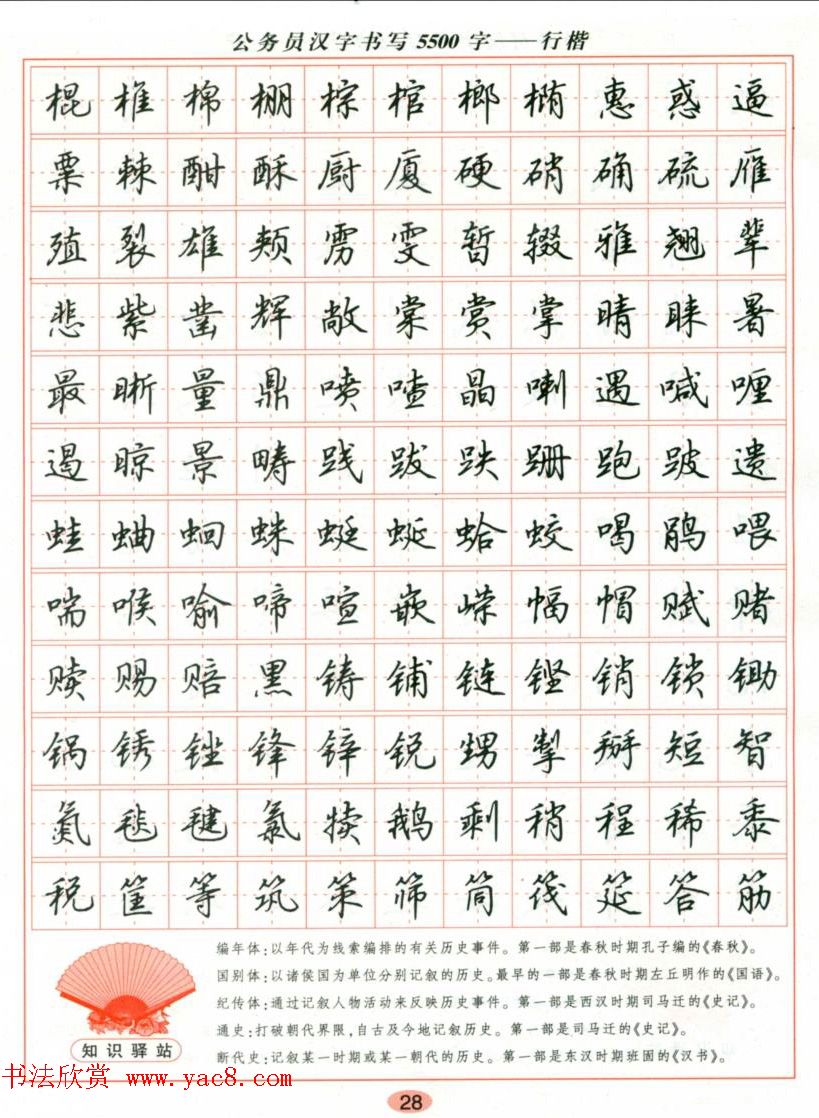 公务员汉字书写5500字——行楷
棍椎棉棚棕棺榔椭惠惑逼
粟棘酣酥厨厦硬硝确硫雁
殖裂雄颊雳雯暂辍雅翘辈
悲紫凿辉敞棠赏掌晴睐暑
最晰量鼎喷喳晶喇遇喊喱
遏晾景畴践跋跌跚跑跛遗
蛙蛐蛔蛛蜓蜒蛤蛟喝鹃喂
喘喉喻啼喧嵌嵘幅帽赋赌
赎赐赔黑铸铺链铿销锁锄
锅锈锉锋锌锐甥掣掰短智
氮毯毽氯犊鹅剩稍程稀黍
税筐等筑策筛筒筏筵答筋
编年体:以年代为线索编排的有关历史事件。第一部是春秋时期孔子编的《春秋》。
国别体:以诸侯国为单位分别记叙的历史。最早的一部是春秋时期左丘明作的《国语》。
纪传体:通过记叙人物活动来反映历史事件。第一部是西汉时期司马迁的《史记》。
通史:打破朝代界限,自古及今地记叙历史。第一部是司马迁的《史记》。
断代史:记叙某一时期或某一朝代的历史。第一部是东汉时期班固的《汉书》。
知识驿站
书法欣赏 www.yac8.com
28